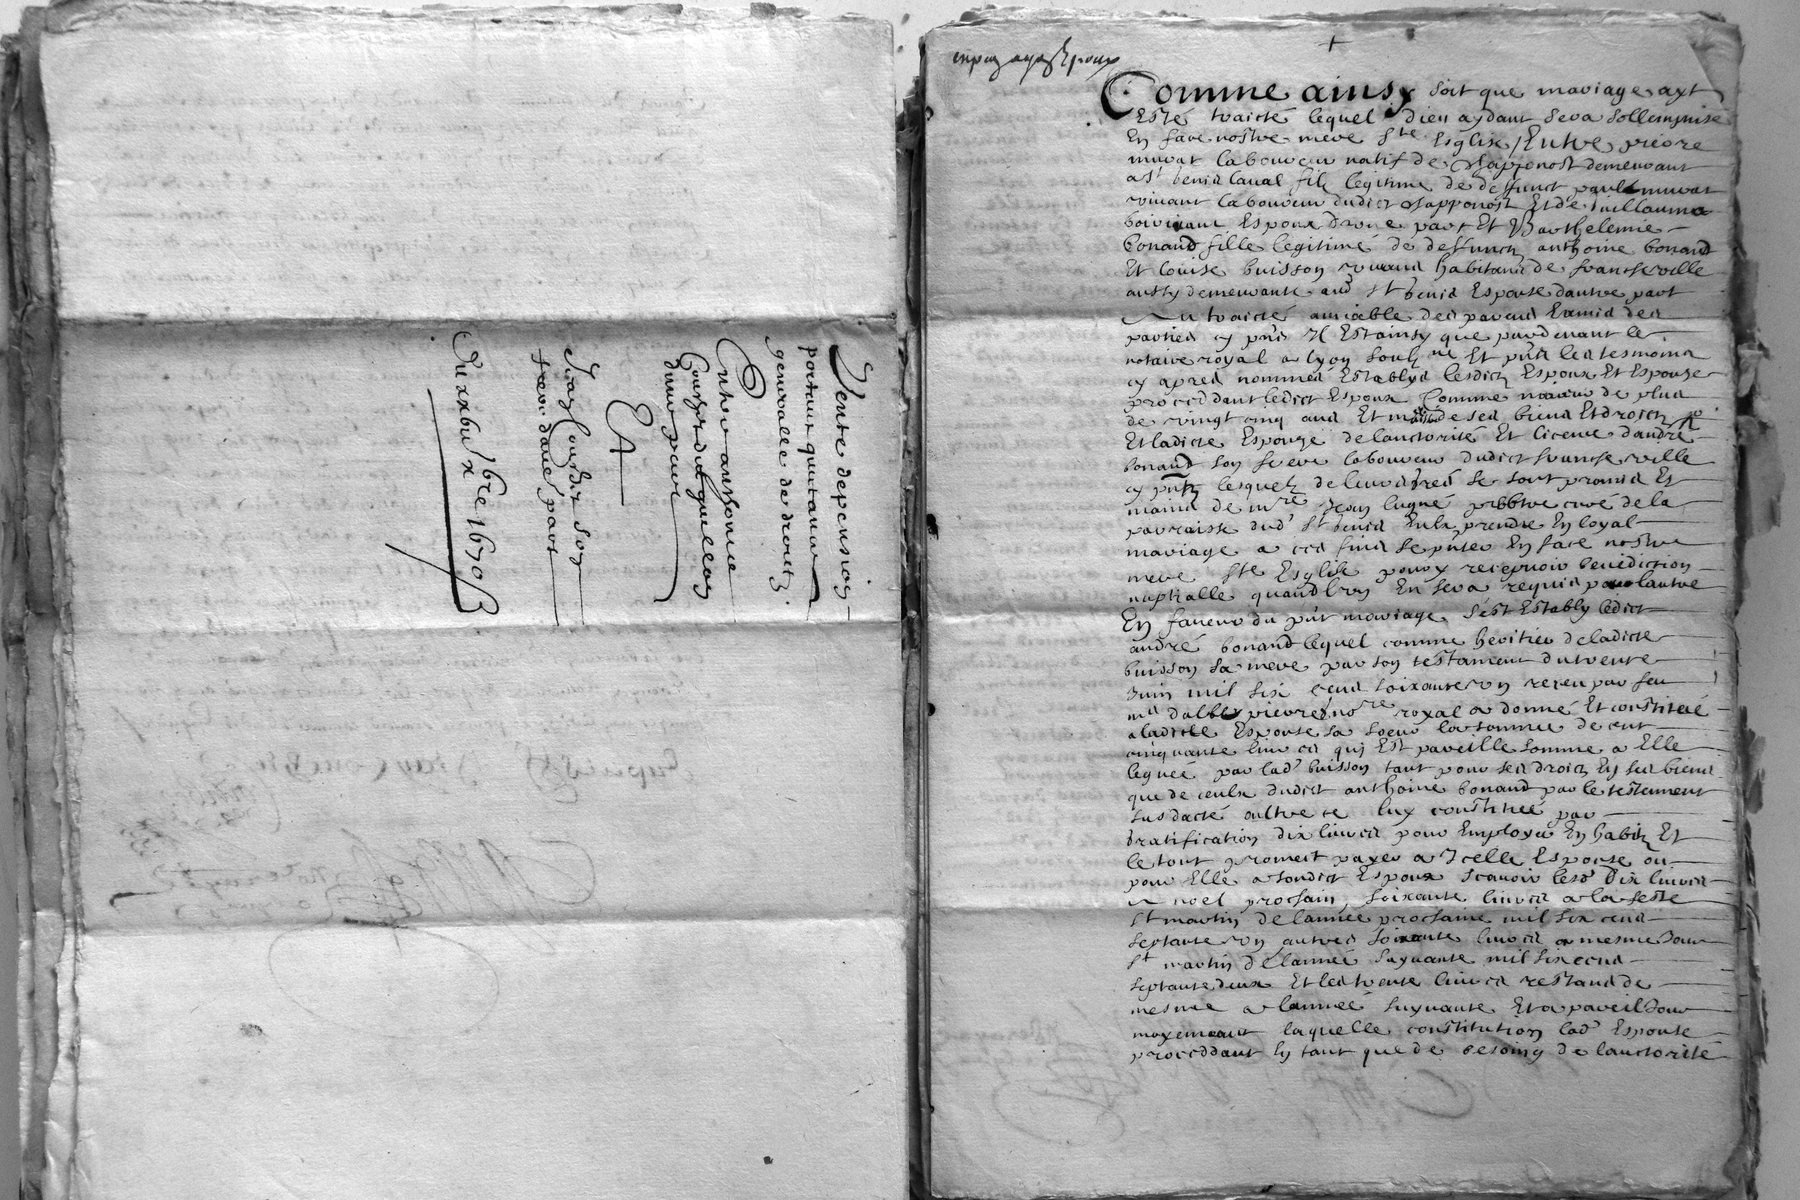 Vente de pension
portant quittance
generalle de droitz
Entre anthonie
d'une part
Et
Jean
frere d'autre part
Du xxbiiie 9bre 1670
Comme ainsy soit que mariage ayt
Esté traicté lequel Dieu aydant sera sollempnise
En face nostre mere Ste Esglise Entre pierre
murat laboureur natif de Chapponost demeurant
a St Genis laual filz legitime de deffunct paul murat
viuant laboureur dudict Chapponost Et de
Espoux d'vne part Et Barthelemie
bonand fille legitime de deffunctz anthoine bonand
Et louise buisson viuans habitans de francheville
aussy demeurante aud St Genis Espouse d'autre part
au traicté amiable des parens Et amis des
parties cy pnts Il Est ainsy que pardeuant le
notaire royal a lyon soubzne Et pnts les tesmoins
cy apres nommés Establys lesdictz Espoux Et Espouse
proceddant ledict Espoux Comme maieur de plus
de vingt cinq ans Et maistre de ses biens Et droictz
Et ladicte Espouze de lauctorité Et licence d'andré
bonand son frere laboureur dudict francheville
cy pnt lesquelz de leurs grés se sont promis Es
mains de mre Jean lugné pbbtre curé de la
parroisse dud St Genis Eulx prendre En loyal
mariage a ces fins se pnter En face nostre
mere Ste Esglise pour y recepuoir benediction
nuptialle quand l'vn En sera requis par lautre
En faueur du pnt mariage s'est Estably ledict
andré bonand lequel comme heritier de ladicte
buisson sa mere par son testament du trente
Juin mil six cens soixante vn receu par feu
me dalbepierre nore royal a donné Et constitué
a ladicte Espouse sa soeur la somme de cent
cinquante liures qui Est pareille somme a Elle
leguée par lad buisson tant pour ses droictz En ses biens
que de ceulx dudict anthoine bonand par le testament
susdacté oultre ce luy constitue par
gratification dix liures pour Employer En habitz Et
le tout promect payer a Icelle Espouse ou
pour Elle a sondict Espoux scauoir lesd dix liures
a noel prochain soixante liures a la feste
St martin de lannée prochaine mil six cens
septante vn autres soixante liures a mesme Jour
St martin de lannée suyuante mil six cens
septante deux Et les trente liures restans de
mesme a lannée suyuante Et a pareil Jour
moyennant laquelle constitution lad Espouse
proceddant En tant que de besoing de lauctorité